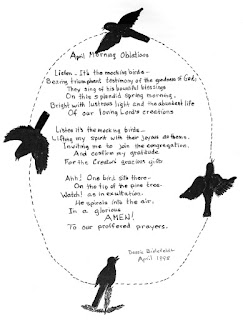 April Morning Oblations
Listen - It's the mocking birds -
Bearing triumphant testimony of the goodness of God;
They sing of his bountiful blessings
On this splendid spring morning -
Bright with lustrous light and the abundant life
Of our loving Lord's creations
Listen it's the mocking birds -
Lifting my spirit with their joyous anthems.
Inviting me to join the congregation,
And confirm my gratitude
For the Creator's gracious gifts
Ahh! One bird sits there -
On the tip of the pine tree.
Watch! as in exultation,
He spirals into the air,
In a glorious
AMEN!
To our proffered prayers.
April 1998